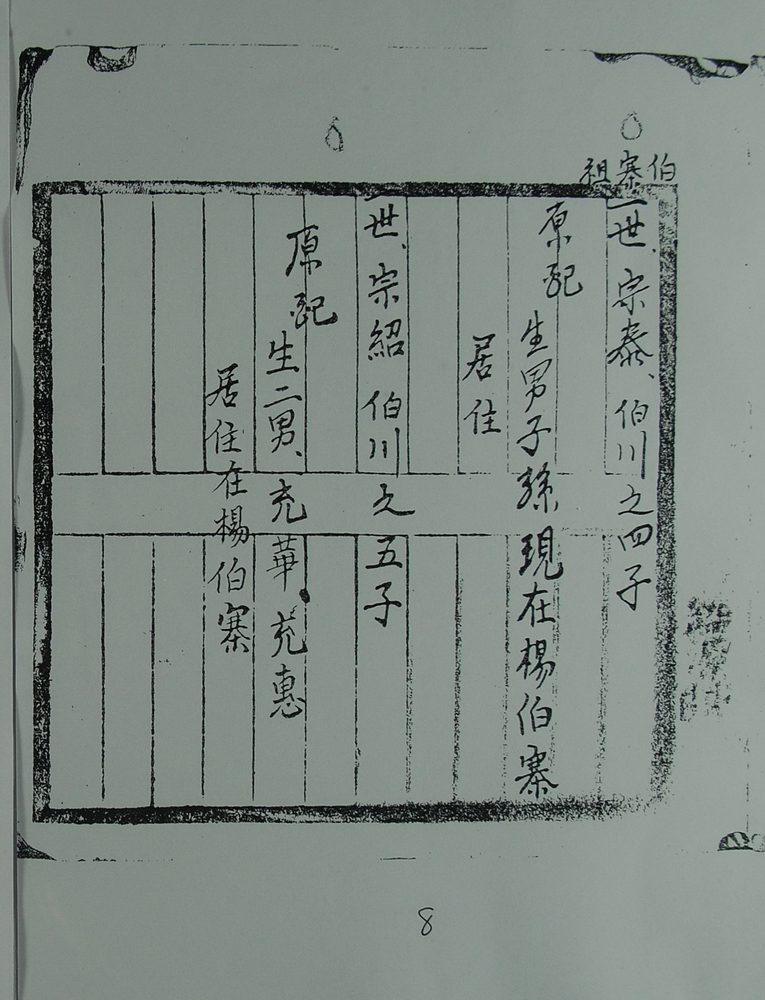 伯寨祖
一世、宗泰、伯川之四子
原配
生男子孫現在楊伯寨
居住
一世、宗紹 伯川之五子
原配
生二男、充華 充惠
居住在楊伯寨
8